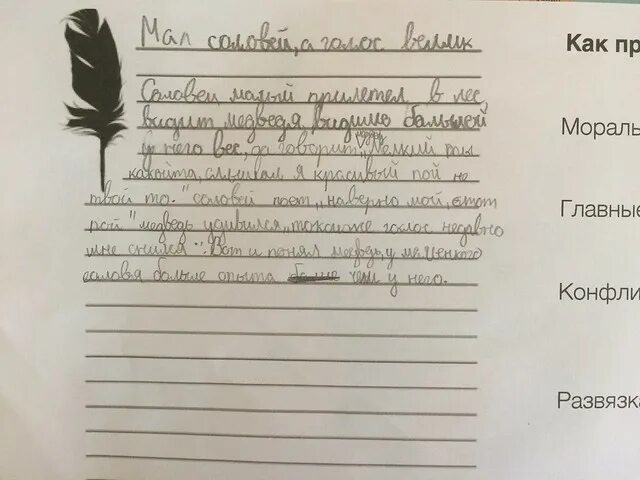 Мал соловей, а голос велик
Как пр
Соловеи малый прилетел в лес,
видит медведя, видимо большей
Мораль
у него вес, да говорит
медведь
„Мелкий ты
какойта, слышал я красивый пой не
твой то." соловей поет „наверно мой, этот
Главные
пой" медведь удивился „токоже голос недавно
мне снился". Вот и понял медведь, у маленького
соловья больше опыта чем у него.
Конфли
Развязка